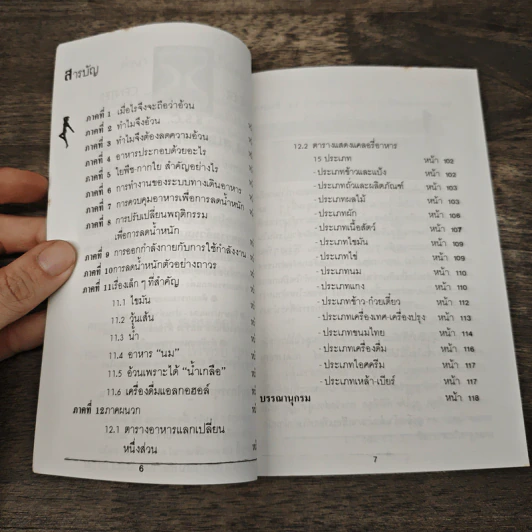 สารบัญ
ภาคที่ 1 เมื่อไรจึงจะถือว่าอ้วน
ภาคที่ 2 ทำไมจึงอ้วน
ภาคที่ 3 ทำไมจึงต้องลดความอ้วน
ภาคที่ 4 อาหารประกอบด้วยอะไร
ภาคที่ 5 ใยพืช-กากใย สำคัญอย่างไร
ภาคที่ 6 การทำงานของระบบทางเดินอาหาร
ภาคที่ 7 การควบคุมอาหารเพื่อการลดน้ำหนัก
ภาคที่ 8 การปรับเปลี่ยนพฤติกรรม
เพื่อการลดน้ำหนัก
ภาคที่ 9 การออกกำลังกายกับการใช้กำลังงาน
ภาคที่ 10การลดน้ำหนักตัวอย่างถาวร
ภาคที่ 11เรื่องเล็ก ๆ ที่สำคัญ
11.1 ไขมัน
11.2 วุ้นเส้น
11.3 น้ำ
11.4 อาหาร "นม"
11.5 อ้วนเพราะได้ "น้ำเกลือ"
11.6 เครื่องดื่มแอลกอฮอล์
ภาคที่ 12ภาคผนวก
12.1 ตารางอาหารแลกเปลี่ยน
หนึ่งส่วน
6
12.2 ตารางแสดงแคลอรี่อาหาร
15 ประเภท หน้า 102
-ประเภทข้าวและแป้ง หน้า 102
-ประเภทถั่วและผลิตภัณฑ์ หน้า 103
-ประเภทผลไม้ หน้า 103
-ประเภทผัก หน้า 106
-ประเภทเนื้อสัตว์ หน้า 107
-ประเภทไขมัน หน้า 109
-ประเภทไข่ หน้า 109
-ประเภทนม หน้า 110
-ประเภทแกง หน้า 110
-ประเภทข้าว-ก๋วยเตี๋ยว หน้า 112
-ประเภทเครื่องเทศ-เครื่องปรุง หน้า 113
-ประเภทขนมไทย หน้า 114
-ประเภทเครื่องดื่ม หน้า 116
-ประเภทไอศครีม หน้า 117
-ประเภทเหล้า-เบียร์ หน้า 117
บรรณานุกรม หน้า 118
7